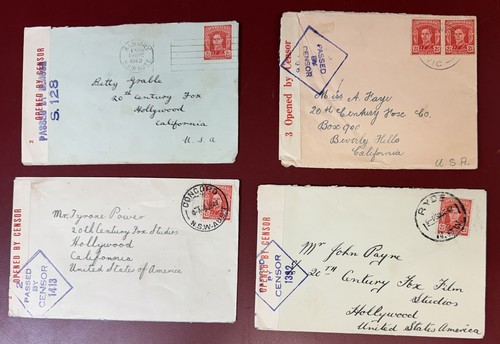 OPENED BY CENSOR
PASSED BY CENSOR
S. 128
Betty Grable
20th Century Fox
Hollywood
California
U.S.A
3 Opened by Censor
PASSED
BY
CENSOR
VIC
Miss A. Faye
20th Century Foxe Co.
Box 900
Beverly Hills
California
U.S.A.
2 OPENED BY CENSOR
PASSED
BY
CENSOR
1413
CONCORD
N.S.W-AUST
Mr. Tyrone Power
20th Century Fox Studios
Hollywood
California
United States of America
OPENED BY CENSOR
PASSED
BY
CENSOR
RYDE
Mr John Payne
20TH Century Fox Film
Studios
Hollywood
United States America